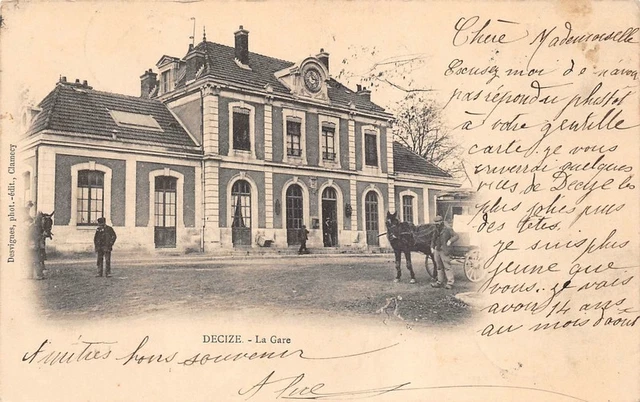 Chère Mademoiselle
Excusez moi de n'avoir
pas répondu plustôt
à votre gentille
carte je vous
enverrai quelques
vues de Decize les
plus jolies pues
des têtes.
je suis plus
jeune que
vous. je vais
avoir 14 ans
au mois d'août
Desvignes, phot.-édit., Clamecy
DECIZE. - La Gare
Amitiés bons souvenir